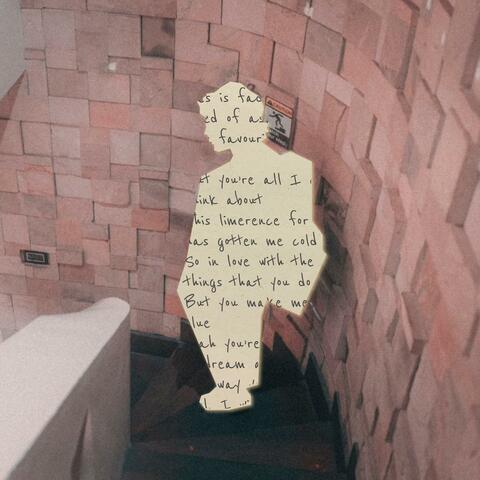 is fac
ed of as
favour
CAUTION
t you're all I
ink about
his limerence for
as gotten me cold
So in love with the
things that you do
But you make me
lue
ah you're
dream o
way
I